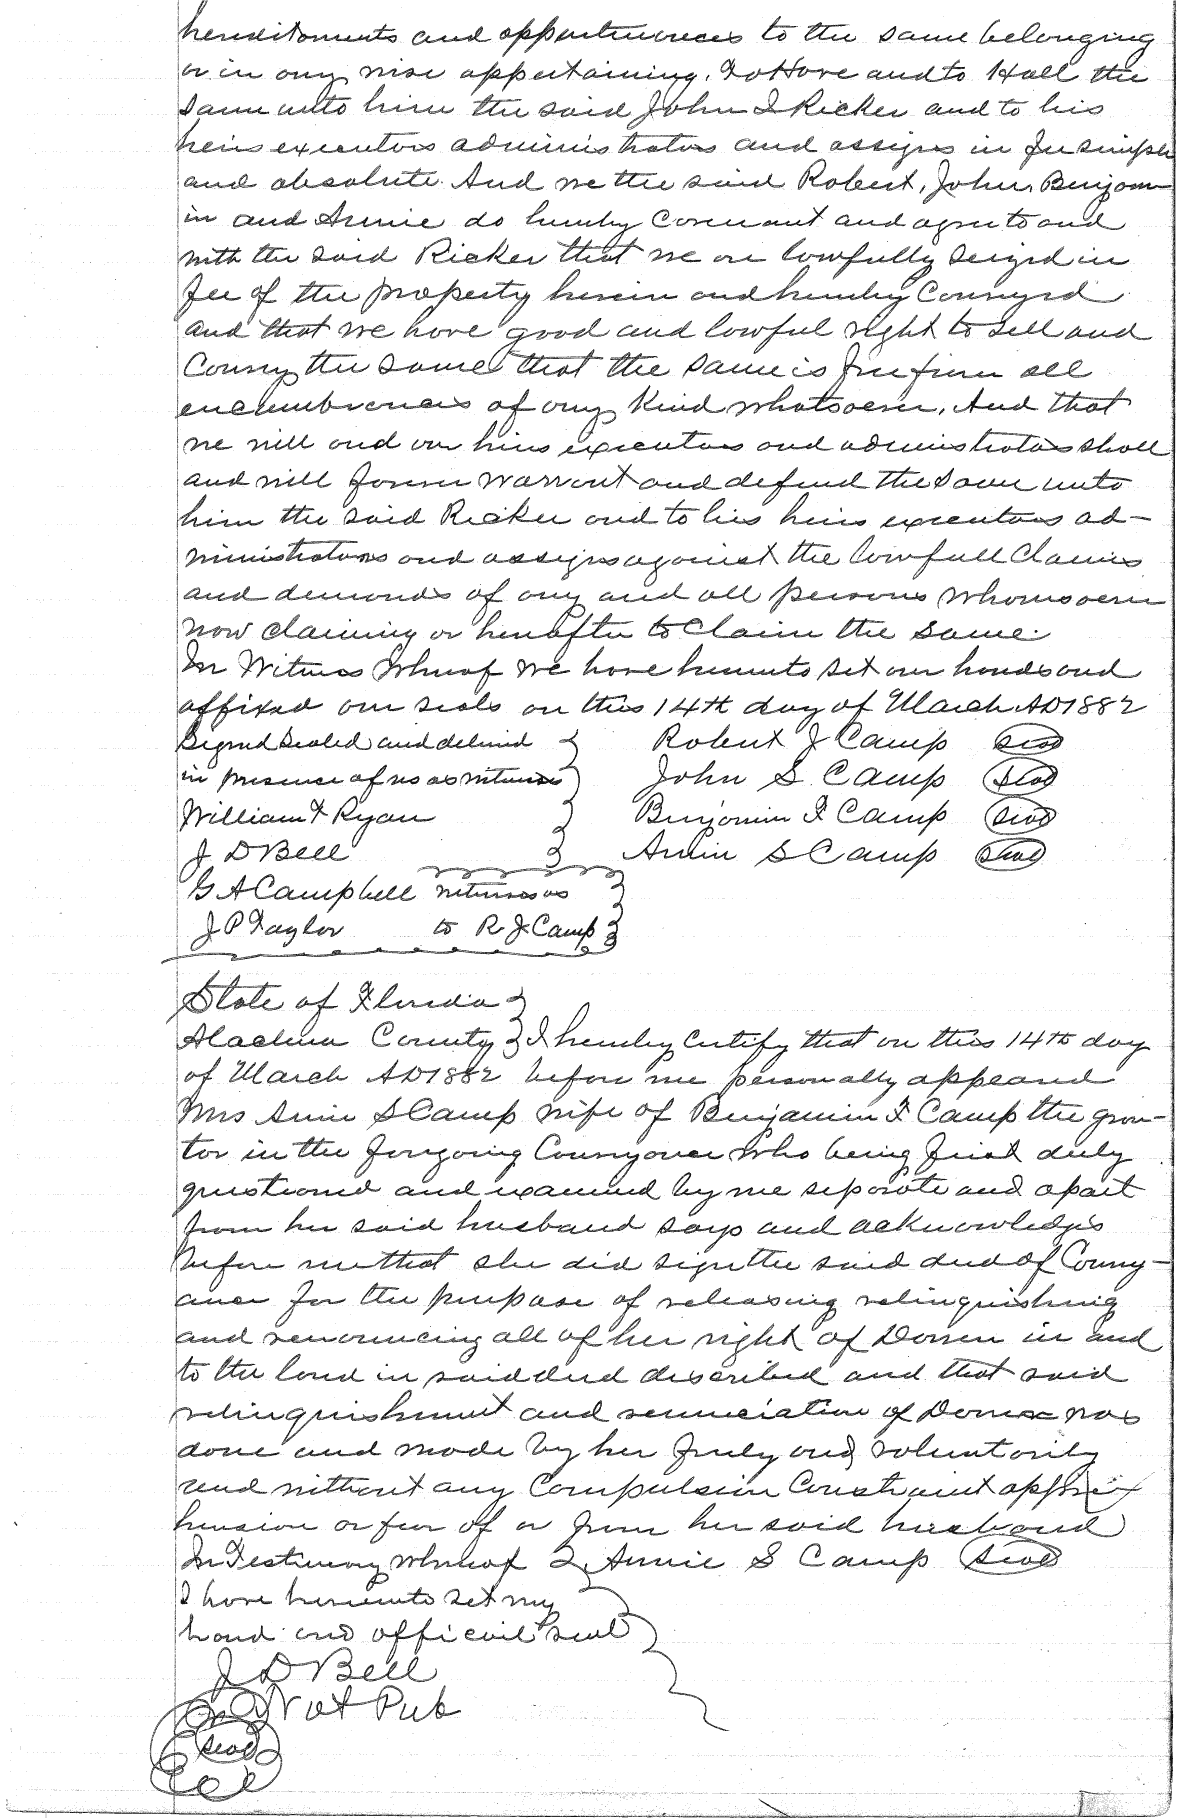 hereditaments and appurtenances to the same belonging
or in any wise appertaining. To Have and to Hold the
same unto him the said John F Ricker and to his
heirs executors administrators and assigns in fee simple
and absolute. And we the said Robert, John, Benjam-
in and Annie do hereby Covenant and agree to and
with the said Ricker that we are lawfully seized in
fee of the property herein and hereby Conveyed
and that we have good and lawful right to sell and
Convey the same that the same is free from all
encumbrances of any kind whatsoever. And that
we will and our heirs executors and administrators shall
and will forever warrant and defend the same unto
him the said Ricker and to his heirs executors ad-
ministrators and assigns against the lawfull Claims
and demands of any and all persons whomsoever
now claiming or hereafter to Claim the same.
In Witness Whereof we have hereunto set our hands and
affixed our seals on this 14th day of March AD 1882
Signed Sealed and delivered Robert J Camp Seal
in presence of us as witnesses John S. Camp Seal
William F Ryan Benjamin F Camp Seal
J D Bell Annie S Camp Seal
G A Campbell witnesses as
J P Taylor to R. J. Camp
State of Florida
Alachua County I hereby Certify that on this 14th day
of March AD 1882 before me personally appeared
Mrs Annie S Camp wife of Benjamin F Camp the gran-
tor in the foregoing Conveyance who being first duly
questioned and examined by me separate and apart
from her said husband says and acknowledges
before me that she did sign the said deed of Convey-
ance for the purpose of releasing relinquishing
and renouncing all of her right of Dower in and
to the land in said deed described and that said
relinquishment and renunciation of Dower was
done and made by her freely and voluntarily
and without any Compulsion Constraint appre-
hension or fear of or from her said husband
In Testimony Whereof Annie S Camp Seal
I have hereunto set my
hand and official seal
J D Bell
Not Pub
Seal